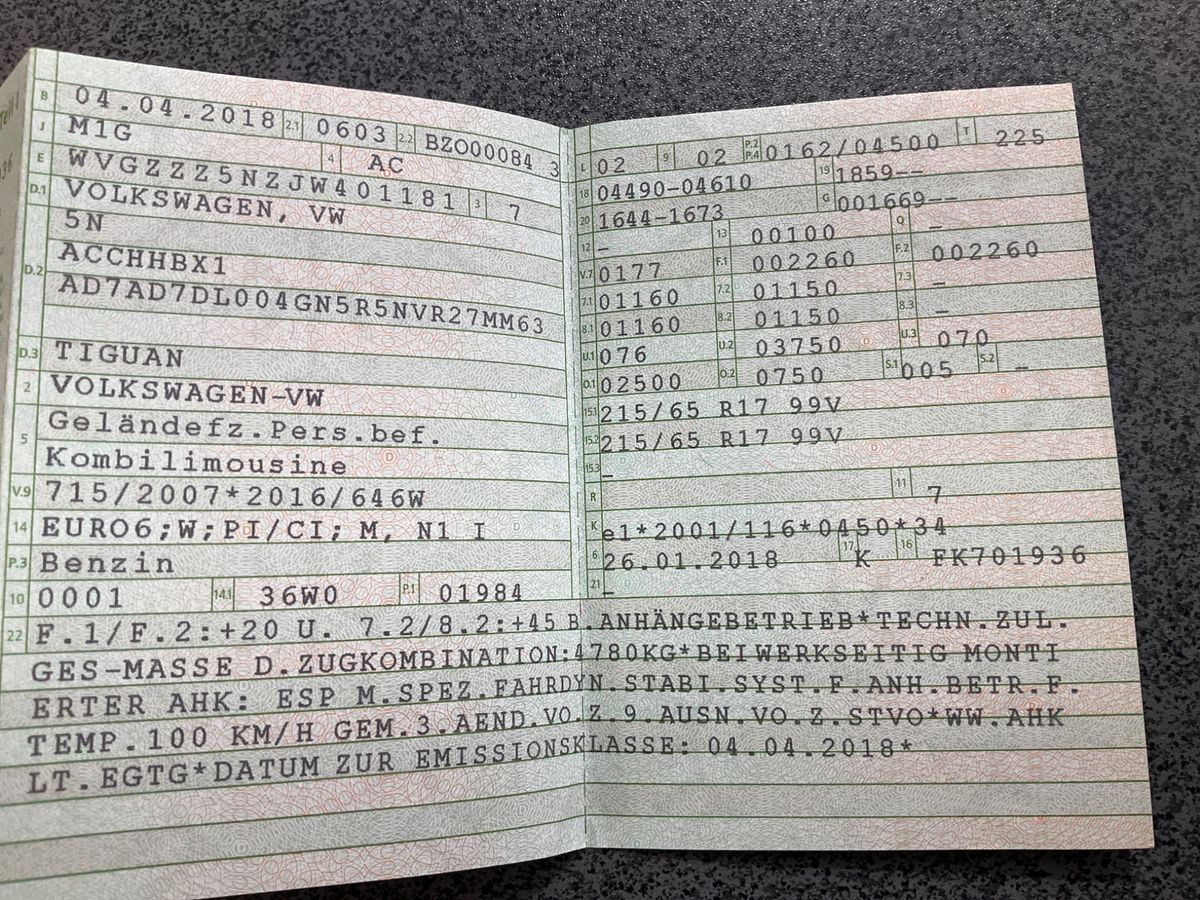 Teil I
B 04.04.2018 2.1 0603 2.2 BZO00084 3
J M1G 4 AC
E WVGZZZ5NZJW401181 3 7
D.1 VOLKSWAGEN, VW
D.2 5N
ACCHHBX1
AD7AD7DL004GN5R5NVR27MM63
D.3 TIGUAN
2 VOLKSWAGEN-VW
5 Geländefz.Pers.bef.
Kombilimousine
V.9 715/2007*2016/646W
14 EURO6;W;PI/CI; M, N1 I
P.3 Benzin
10 0001 14.1 36W0 P.1 01984
L 02 9 02 P.2 P.4 0162/04500 T 225
18 04490-04610 19 1859--
20 1644-1673 G 001669--
12 – 13 00100 Q –
V.7 0177 F.1 002260 F.2 002260
7.1 01160 7.2 01150 7.3 –
8.1 01160 8.2 01150 8.3 –
U.1 076 U.2 03750 U.3 070
O.1 02500 O.2 0750 S.1 005 S.2 –
15.1 215/65 R17 99V
15.2 215/65 R17 99V
15.3 –
R 11 7
K e1*2001/116*0450*34
6 26.01.2018 17 K 16 FK701936
21 –
22 F.1/F.2:+20 U. 7.2/8.2:+45 B.ANHÄNGEBETRIEB*TECHN.ZUL.
GES-MASSE D.ZUGKOMBINATION:4780KG*BEI WERKSEITIG MONTI
ERTER AHK: ESP M.SPEZ.FAHRDYN.STABI.SYST.F.ANH.BETR.F.
TEMP.100 KM/H GEM.3.AEND.VO.Z.9.AUSN.VO.Z.STVO*WW.AHK
LT.EGTG*DATUM ZUR EMISSIONSKLASSE: 04.04.2018*